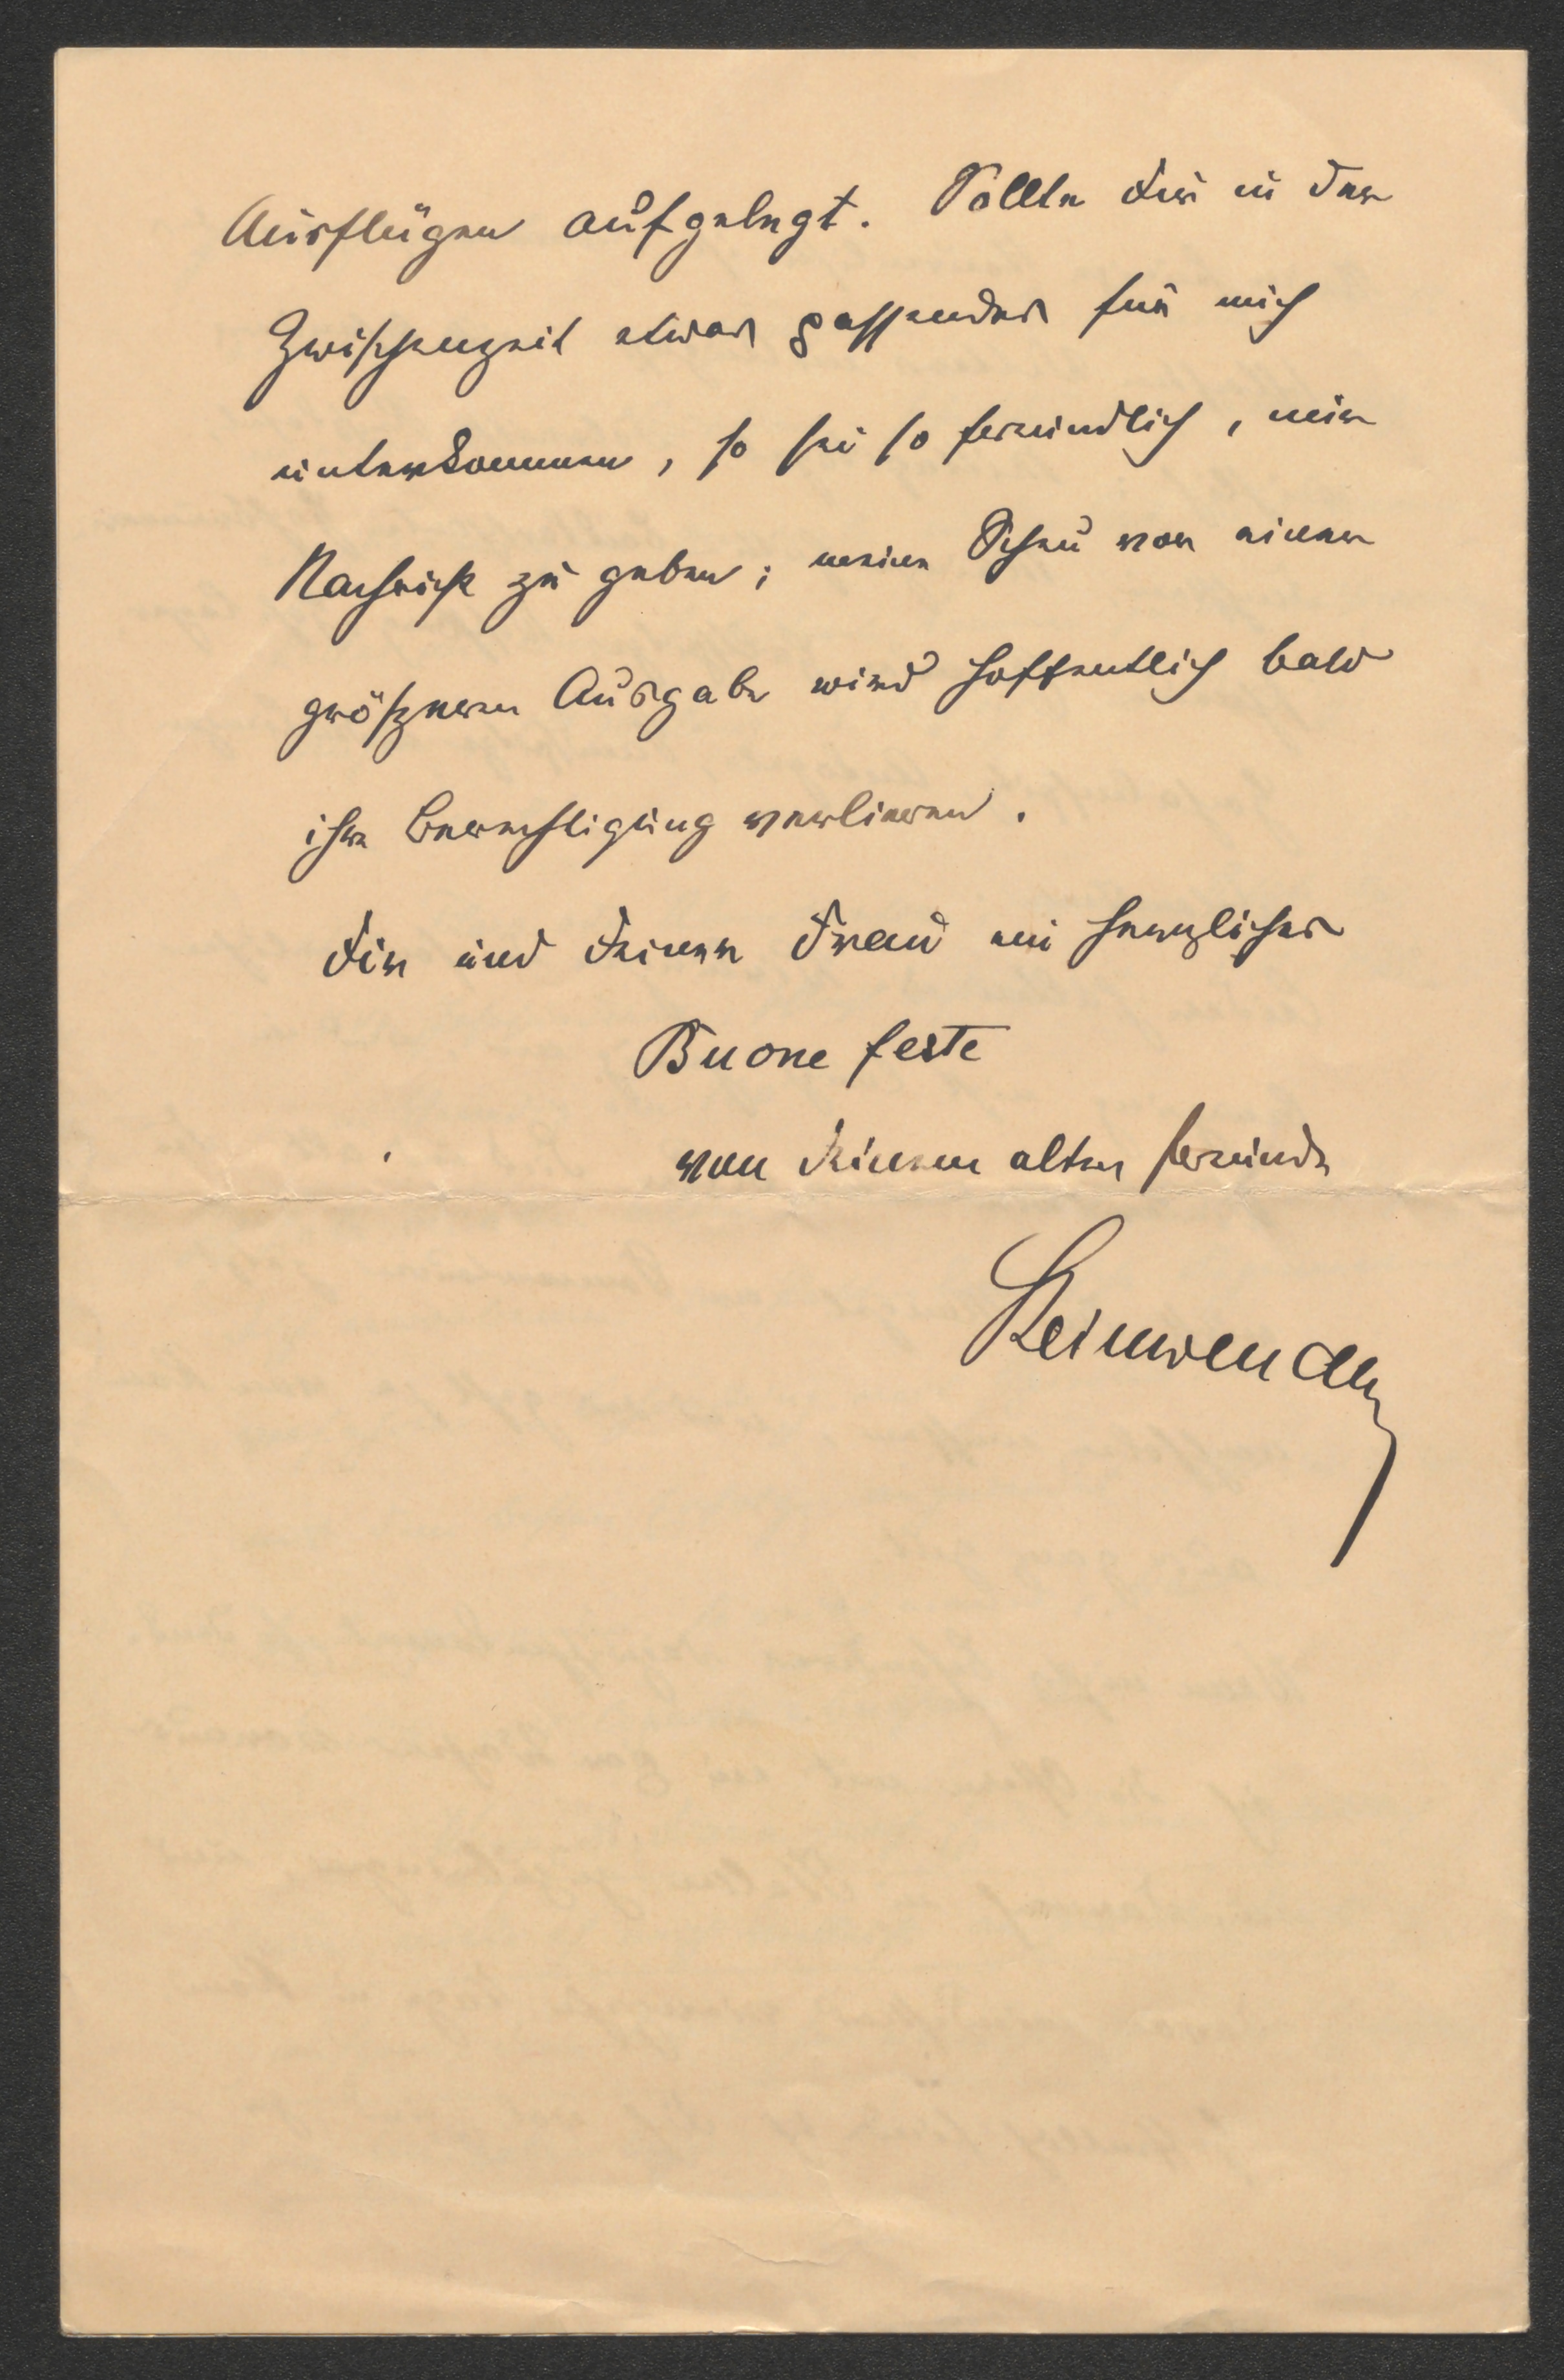 Ausflügen aufgelegt. Sollte Dir in der
Zwischenzeit etwas passendes für mich
unterkommen, so sei so freundlich, mir
Nachricht zu geben; meine Scheu vor einer
größeren Ausgabe wird hoffentlich bald
ihre Berechtigung verlieren.
Dir und Deiner Frau ein herzliches
Buone feste
von Deinem alten Freunde